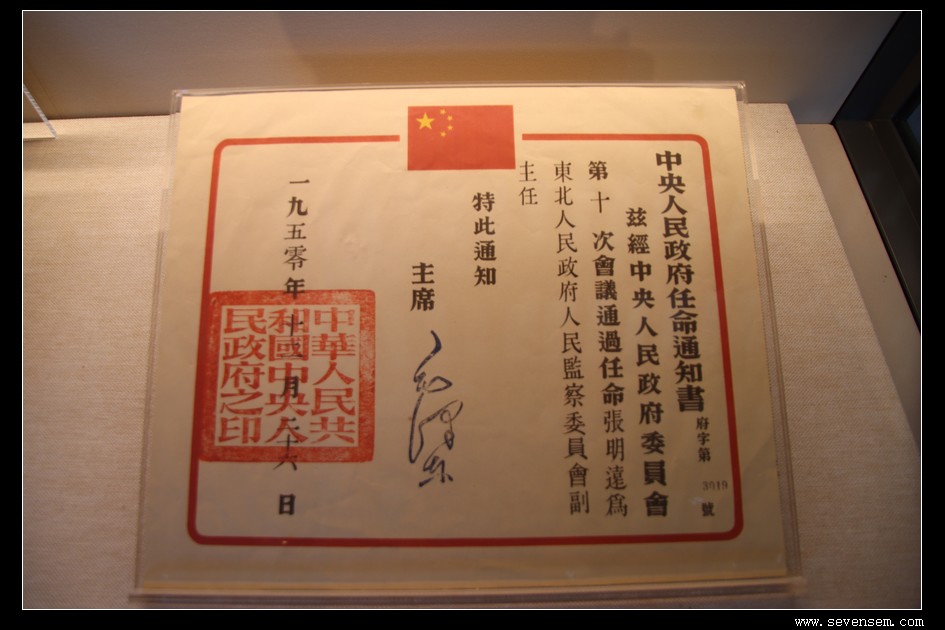 中央人民政府任命通知書
府字第3019號
茲經中央人民政府委員會
第十次會議通過任命張明遠爲
東北人民政府人民監察委員會副
主任
特此通知
主席 毛澤東
一九五零年十月十六日
中華人民共
和國中央人
民政府之印
www.sevensem.com